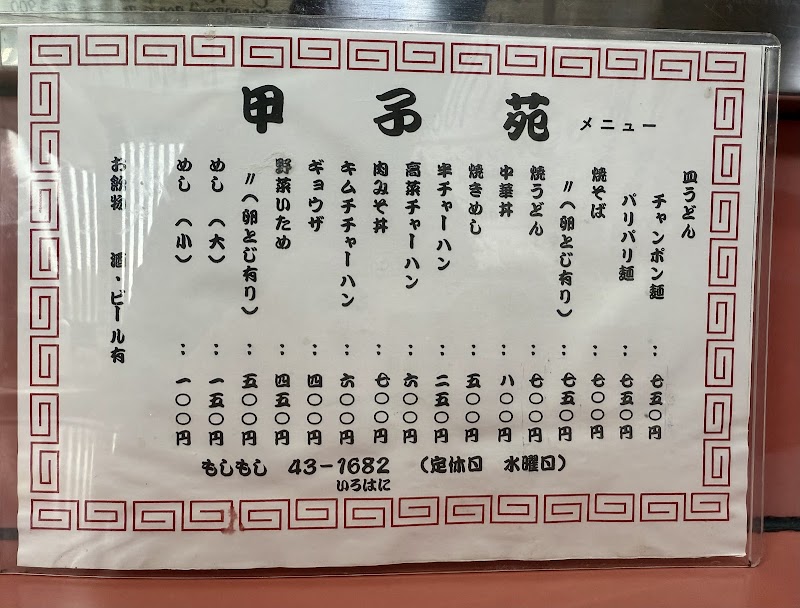 甲子苑 メニュー
皿うどん
チャンポン麺 : 七五〇円
パリパリ麺 : 七五〇円
焼そば : 七〇〇円
〃(卵とじ有り) : 七五〇円
焼うどん : 七〇〇円
中華丼 : 八〇〇円
焼きめし : 五〇〇円
半チャーハン : 二五〇円
高菜チャーハン : 六〇〇円
肉みそ丼 : 七〇〇円
キムチチャーハン : 六〇〇円
ギョウザ : 四〇〇円
野菜いため : 四五〇円
〃(卵とじ有り) : 五〇〇円
めし (大) : 一五〇円
めし (小) : 一〇〇円
お飲物 酒・ビール有
もしもし 43-1682 (定休日 水曜日)
いろはに